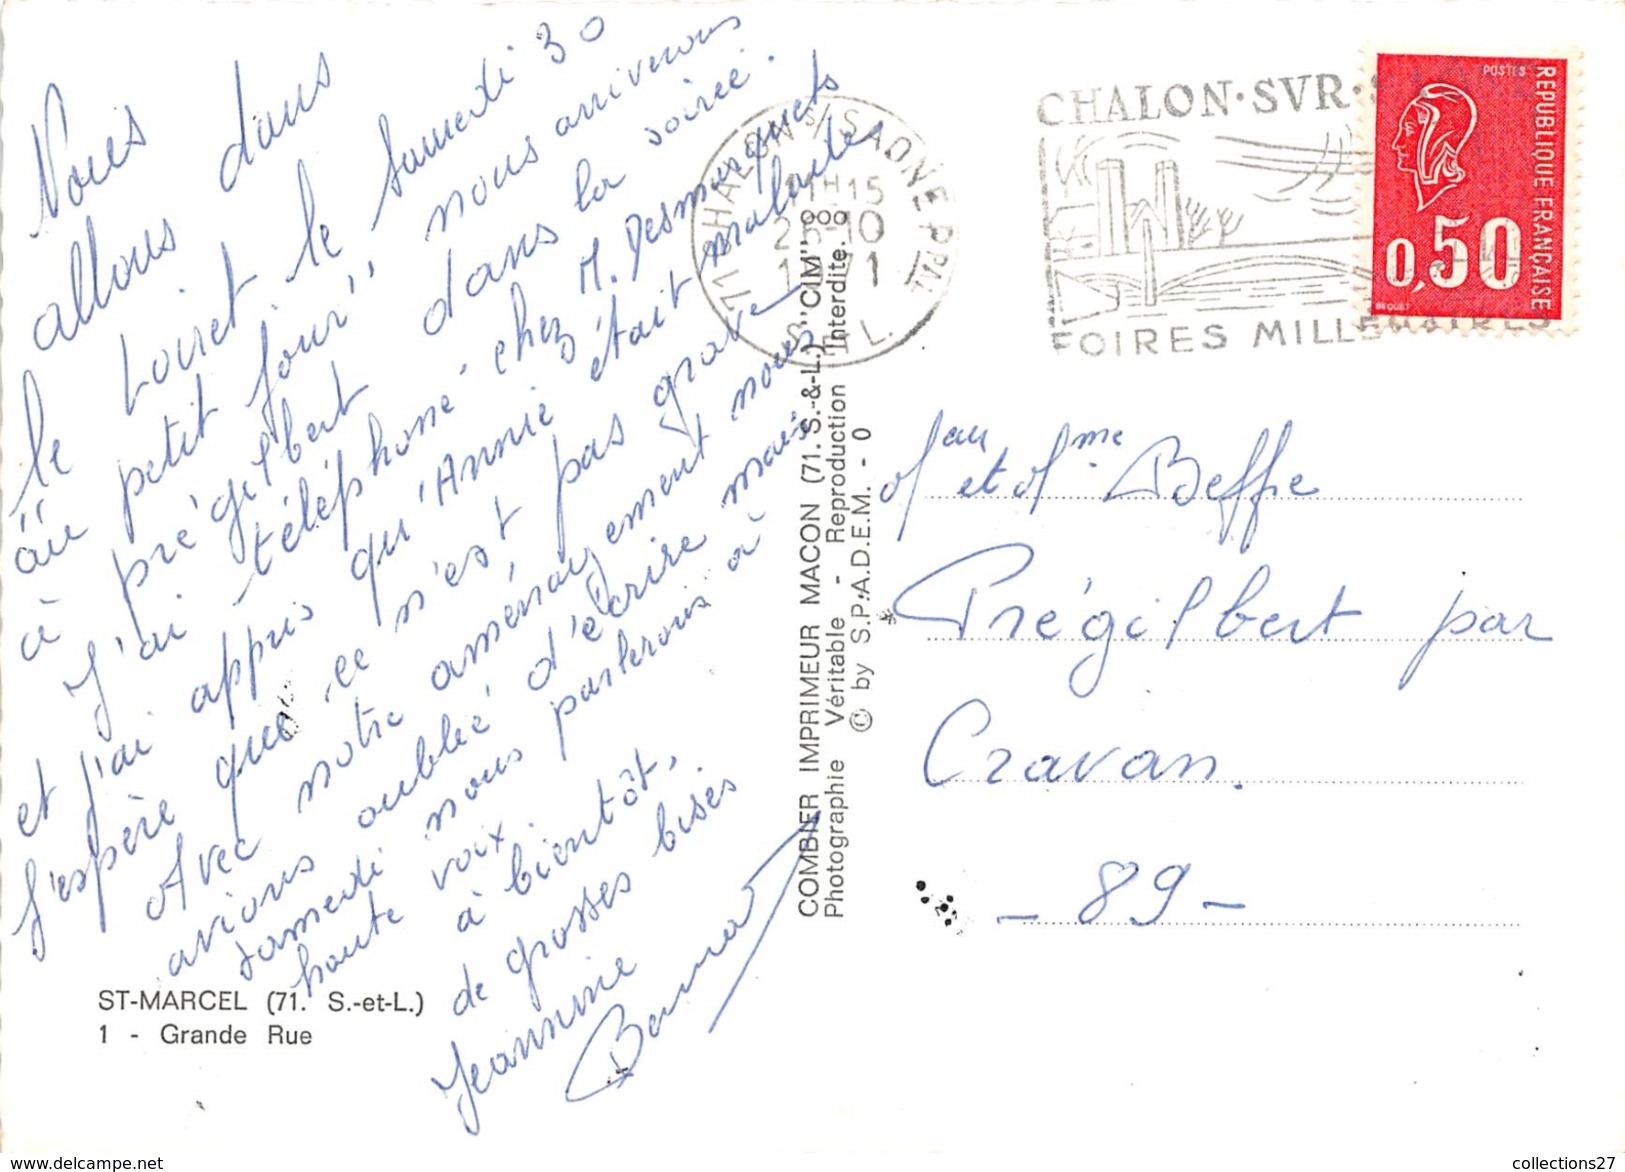 Nous
allons dans
le Loiret le samedi 30
au "petit jour" nous arriverons
à prégilbert dans la soirée.
J'ai téléphoné chez M. Desmarquets
et j'ai appris qu'Annie était malade
J'espère que ce n'est pas grave
Avec notre aménagement nous
avions oublié d'écrire mais
samedi nous parlerons à
haute voix.
à bientôt,
de grosses bises
Jeannine
Bernard
ST-MARCEL (71. S.-et-L.)
1 - Grande Rue
COMBIER IMPRIMEUR MACON (71. S.-&-L.) "CIM"
Photographie Véritable - Reproduction Interdite.
© by S.P.A.D.E.M. - 0
71 CHALON S/ SAONE PPAL
11H15
10
S. L.
CHALON·SVR·
FOIRES MILLENAIRES
POSTES
REPUBLIQUE FRANÇAISE
0,50
BEQUET
Mr et Mme Beffie
Prégilbert par
Cravan.
- 89 -
collections27